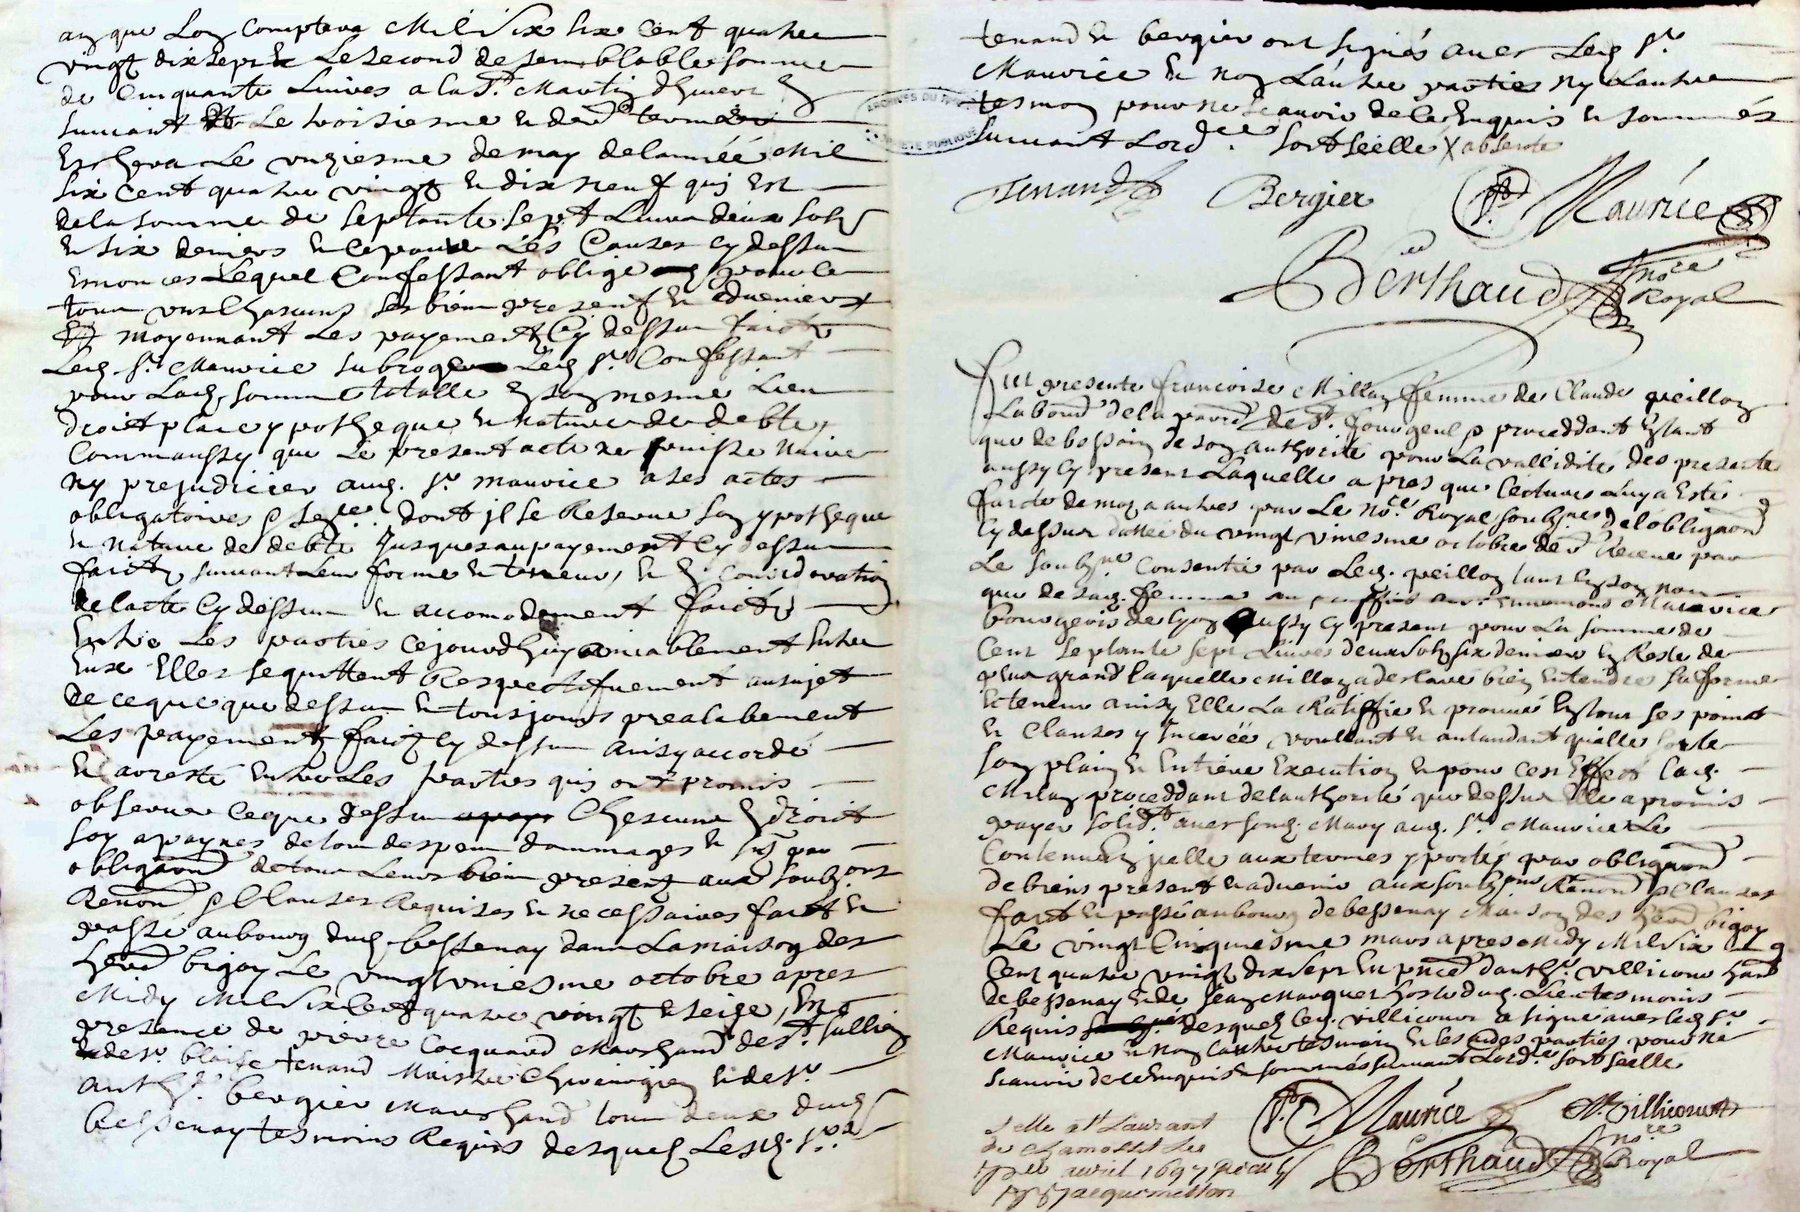 an que Lon Comptera Mil Six Cent quatre
vingt dix sept & Le second de semblable somme
de Cinquante Livres a la St. Martin d'hiver En
suivant Et Le troisiesme & der terme
Eschera Le unziesme de may de lannéé Mil
six cent quatre vingt & dix neuf qui Est
de la somme de septante sept Livres deux solz
& six deniers & ce pour Les Causes Cy dessus
Enonces Lequel Confessant oblige pour le
tout un Chascuns ses biens presentz & advenirs
moyennant Les payementz Cy dessus faictz
Led. Sr. Maurice subroge Led. Sr. Confessant
pour Lad. somme totalle En son mesme Lieu
droict place ypotheque & nature de debte
Comm aussy que Le present acte ne puisse Nuire
ny prejudicier aud. Sr. maurice a ses actes
obligatoires dont jl se Reserve son ypotheque
& nature de debte Jusques au payement Cy dessus
faictz suivant Leur forme & teneur, & En Considération
de lacte Cy dessus & accomodement faictz
Entre Les parties cejourdhuy amiablement Entre
Eux Elles se quittent Respectifvement au sujet
de ce que que dessus & tousjours prealablement
Les payementz faictz Cy dessus ainsy accordé
& arresté Entre Les parties qui ont promis
observer Ce que dessus Chescune En droict
soy a paynes de tous despens dommages &
obligaon de tous Leurs biens presentz aux soubz.ons
Renon & Clauses Requises & necessaires faict &
passé au bourg dud. bessenay dans La maison des
herd bigoy Le vingt uniesme octobre apres
Midy Mil Six Cent quatre vingt & seize, En
presence de pierre Cocquard Marchand de St. Jullien
& de sr. blaise tenand Maistre Chirurgien & de sr.
anth. bergier Marchand tous deux dud.
bessenay tesmoins Requis desquels Lesd. Srs.
tenand & bergier ont signés avec Led. Sr.
Maurice & non Lautre parties ny Lautre
tesmoin pour ne scavoir de ce Enquis & sommés
suivant Lord.ce sort scelle X absente
ARCHIVES DU RHÔNE
PROPRIÉTÉ PUBLIQUE
Tenand Bergier Maurice
Berthaud nore Royal
Fut presente francoise Millon femme de Claude peillon
Labour de la parre de St. fourgeul procedant Estant
que de besoin de son authorité pour La vallidité des presente
aussy Cy present Laquelle apres que Lecture luy a Esté
faicte de mot a autres par Le Nore. Royal soubz.ne de l'obligaon
Cy dessus dattée du vingt uniesme octobre der Receue par
Le soubz.ne Consentie par Led. peillon tant En son nom
que de sad. femme au proffit de sr. Ennemond Maurice
bourgeois de lyon aussy Cy present pour La somme de
Cent septante sept Livres deux solz six deniers En Reste de
plus grand laquelle Millon a desclaré bien Entendre sa forme
& teneur ainsy Elle La Ratiffie & prouve En tout ses points
& Clauses y Incerëe voullant & antandant qu'elle sorte
son plain & Entiere Execution & pour Cest Effect Lad.
Millon proceddant de lauthorité que dessus Elle a promis
payer solid.t avec sond. Mary aud. Sr. Maurice Le
Contenu En jcelle aux termes y portés par obligaon
de biens presentz & advenir aux soubz.ons Renon & Clauses
faict & passé au bourg de bessenay Maison des herd bigoy
Le vingt Cinquiesme mars apres Midy Mil Six
Cent quatre vingt dix sept En pnce d'anth. villicour
de bessenay & de Jean Marquet hoste dud. Lieu tesmoins
Requis desquels Led. villicour a signé avec led. Sr.
Maurice & non Lautre tesmoin & lesdites parties pour ne
scavoir de ce Enquis & sommés suivant Lord.ce sort scelle
Maurice Villicourt
Berthaud nore Royal
Selle a St Laurant
de Chamosset Le
avril 1697
Jacquemetton